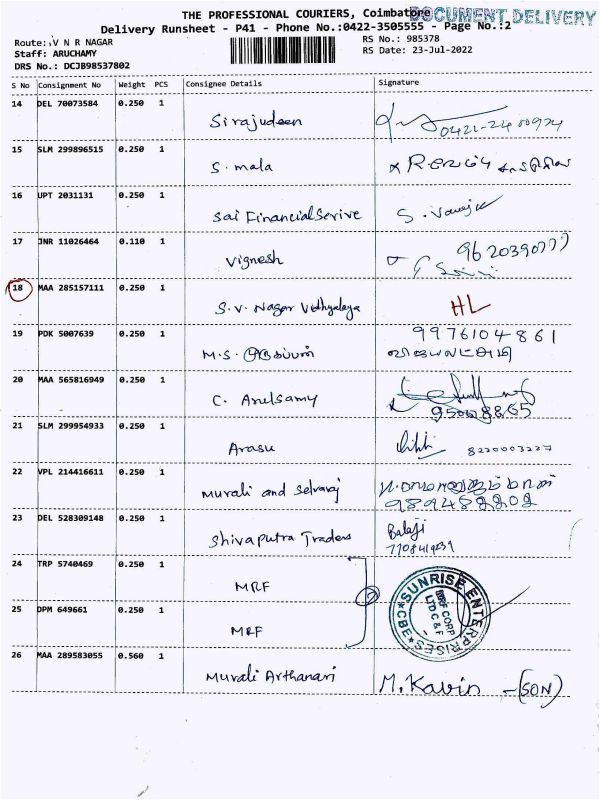 THE PROFESSIONAL COURIERS, Coimbatore
DOCUMENT DELIVERY
Delivery Runsheet - P41 - Phone No.:0422-3505555 - Page No.:2
Route: V N R NAGAR
RS No.: 985378
Staff: ARUCHAMY
RS Date: 23-Jul-2022
DRS No.: DCJB98537802
S No Consignment No Weight PCS Consignee Details Signature
14 DEL 70073584 0.250 1 Sirajudeen
15 SLM 299896515 0.250 1 S. mala
16 UPT 2031131 0.250 1 Sai Financial Serive
17 JNR 11026464 0.110 1 Vignesh
18 MAA 285157111 0.250 1 S.V. Nagar Vidhyalaya HL
19 PDK 5007639 0.250 1 M.S. 9976104861
20 MAA 565816949 0.250 1 C. Arulsamy
21 SLM 299954933 0.250 1 Arasu 8220003227
22 VPL 214416611 0.250 1 Murali and Selvaraj
23 DEL 528309148 0.250 1 Shivaputra Traders Balaji
24 TRP 5740469 0.250 1 MRF
25 DPM 649661 0.250 1 MRF
SUNRISE ENTERPRISES
*CBE*
MRF CORP
LTD C & F
26 MAA 289583055 0.560 1 Murali Arthanari M. Kavin - (SON)